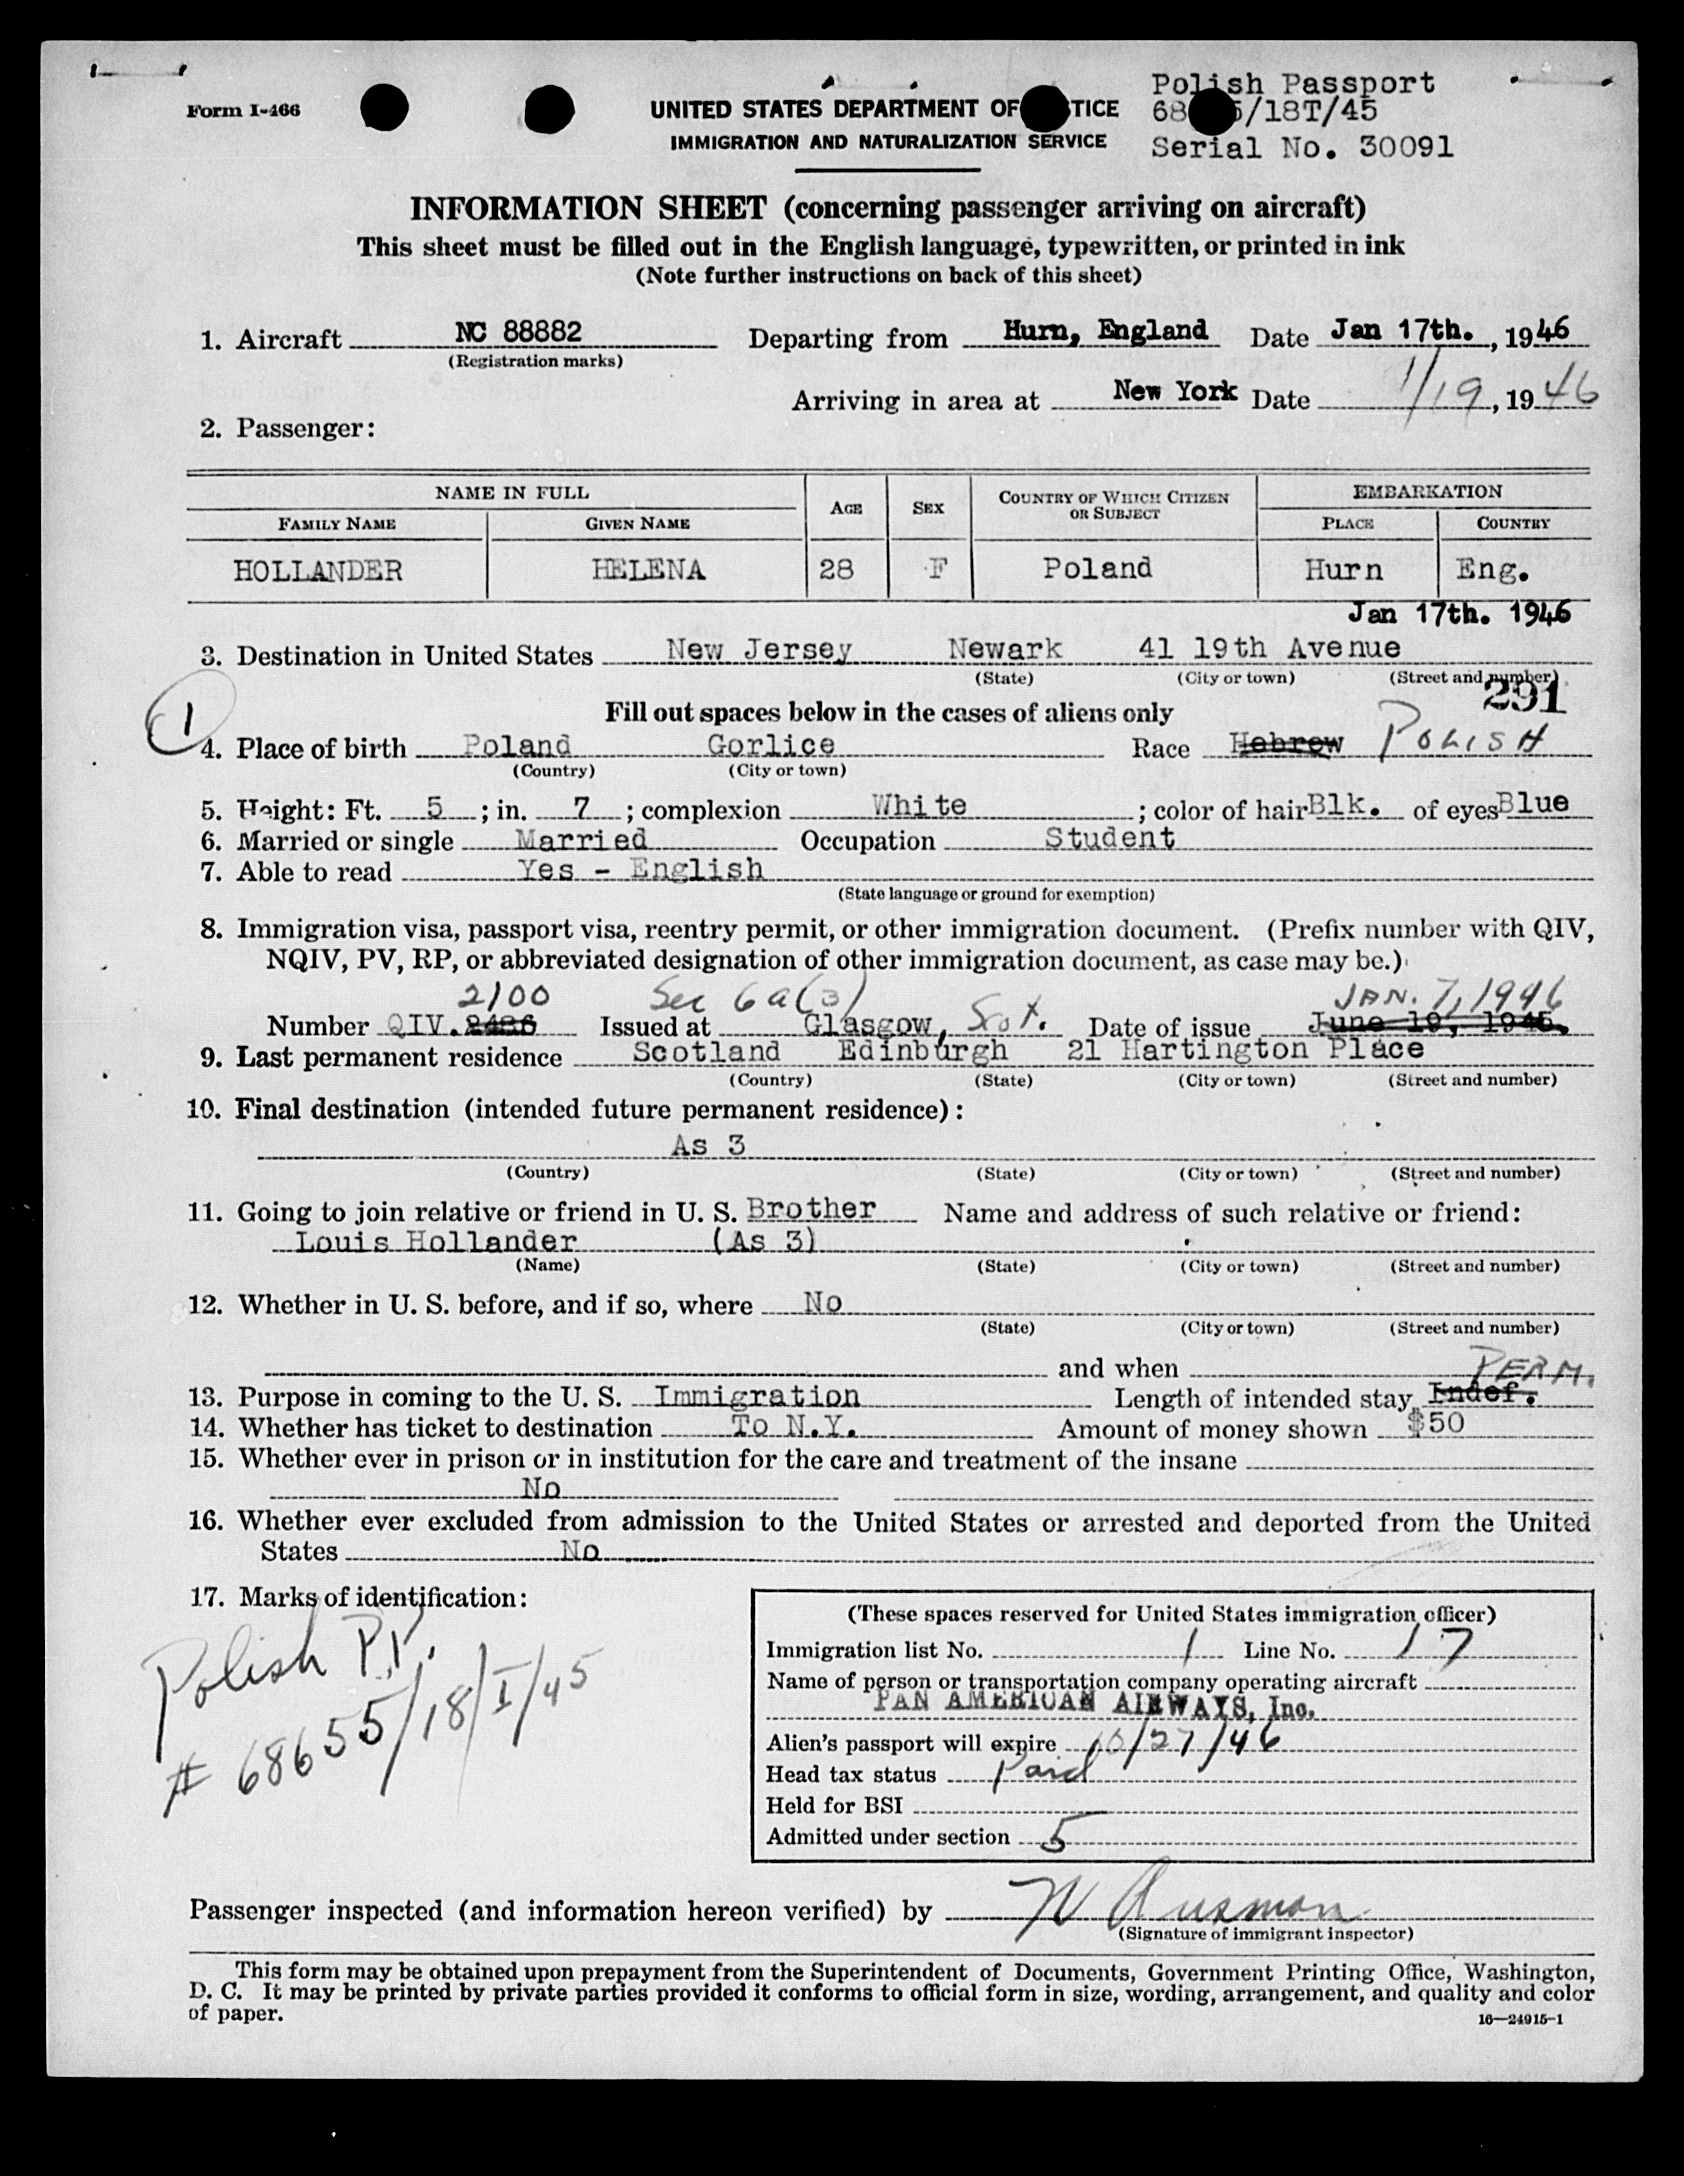 Form I-466
UNITED STATES DEPARTMENT OF TICE
IMMIGRATION AND NATURALIZATION SERVICE
Polish Passport
68 5/18T/45
Serial No. 30091
INFORMATION SHEET (concerning passenger arriving on aircraft)
This sheet must be filled out in the English language, typewritten, or printed in ink
(Note further instructions on back of this sheet)
1. Aircraft NC 88882 Departing from Hurn, England Date Jan 17th., 1946
(Registration marks)
Arriving in area at New York Date 1/19, 1946
2. Passenger:
NAME IN FULL AGE SEX COUNTRY OF WHICH CITIZEN OR SUBJECT EMBARKATION
FAMILY NAME GIVEN NAME PLACE COUNTRY
HOLLANDER HELENA 28 F Poland Hurn Eng.
Jan 17th. 1946
3. Destination in United States New Jersey Newark 41 19th Avenue
(State) (City or town) (Street and number)
291
1
Fill out spaces below in the cases of aliens only
4. Place of birth Poland Gorlice Race Hebrew POLISH
(Country) (City or town)
5. Height: Ft. 5; in. 7; complexion White; color of hair Blk. of eyes Blue
6. Married or single Married Occupation Student
7. Able to read Yes - English
(State language or ground for exemption)
8. Immigration visa, passport visa, reentry permit, or other immigration document. (Prefix number with QIV,
NQIV, PV, RP, or abbreviated designation of other immigration document, as case may be.)
2100 Sec 6a(3) JAN. 7, 1946
Number QIV. 2486 Issued at Glasgow, Scot. Date of issue June 19, 1945.
9. Last permanent residence Scotland Edinburgh 21 Hartington Place
(Country) (State) (City or town) (Street and number)
10. Final destination (intended future permanent residence):
As 3
(Country) (State) (City or town) (Street and number)
11. Going to join relative or friend in U. S. Brother Name and address of such relative or friend:
Louis Hollander (As 3)
(Name) (State) (City or town) (Street and number)
12. Whether in U. S. before, and if so, where No
(State) (City or town) (Street and number)
and when
PERM.
13. Purpose in coming to the U. S. Immigration Length of intended stay Indef.
14. Whether has ticket to destination To N.Y. Amount of money shown $50
15. Whether ever in prison or in institution for the care and treatment of the insane
No
16. Whether ever excluded from admission to the United States or arrested and deported from the United
States No
17. Marks of identification:
Polish P.P.
# 68655/18/I/45
(These spaces reserved for United States immigration officer)
Immigration list No. 1 Line No. 17
Name of person or transportation company operating aircraft
PAN AMERICAN AIRWAYS, Inc.
Alien's passport will expire 10/27/46
Head tax status Paid
Held for BSI
Admitted under section 5
Passenger inspected (and information hereon verified) by
(Signature of immigrant inspector)
This form may be obtained upon prepayment from the Superintendent of Documents, Government Printing Office, Washington,
D. C. It may be printed by private parties provided it conforms to official form in size, wording, arrangement, and quality and color
of paper.
16—24915-1